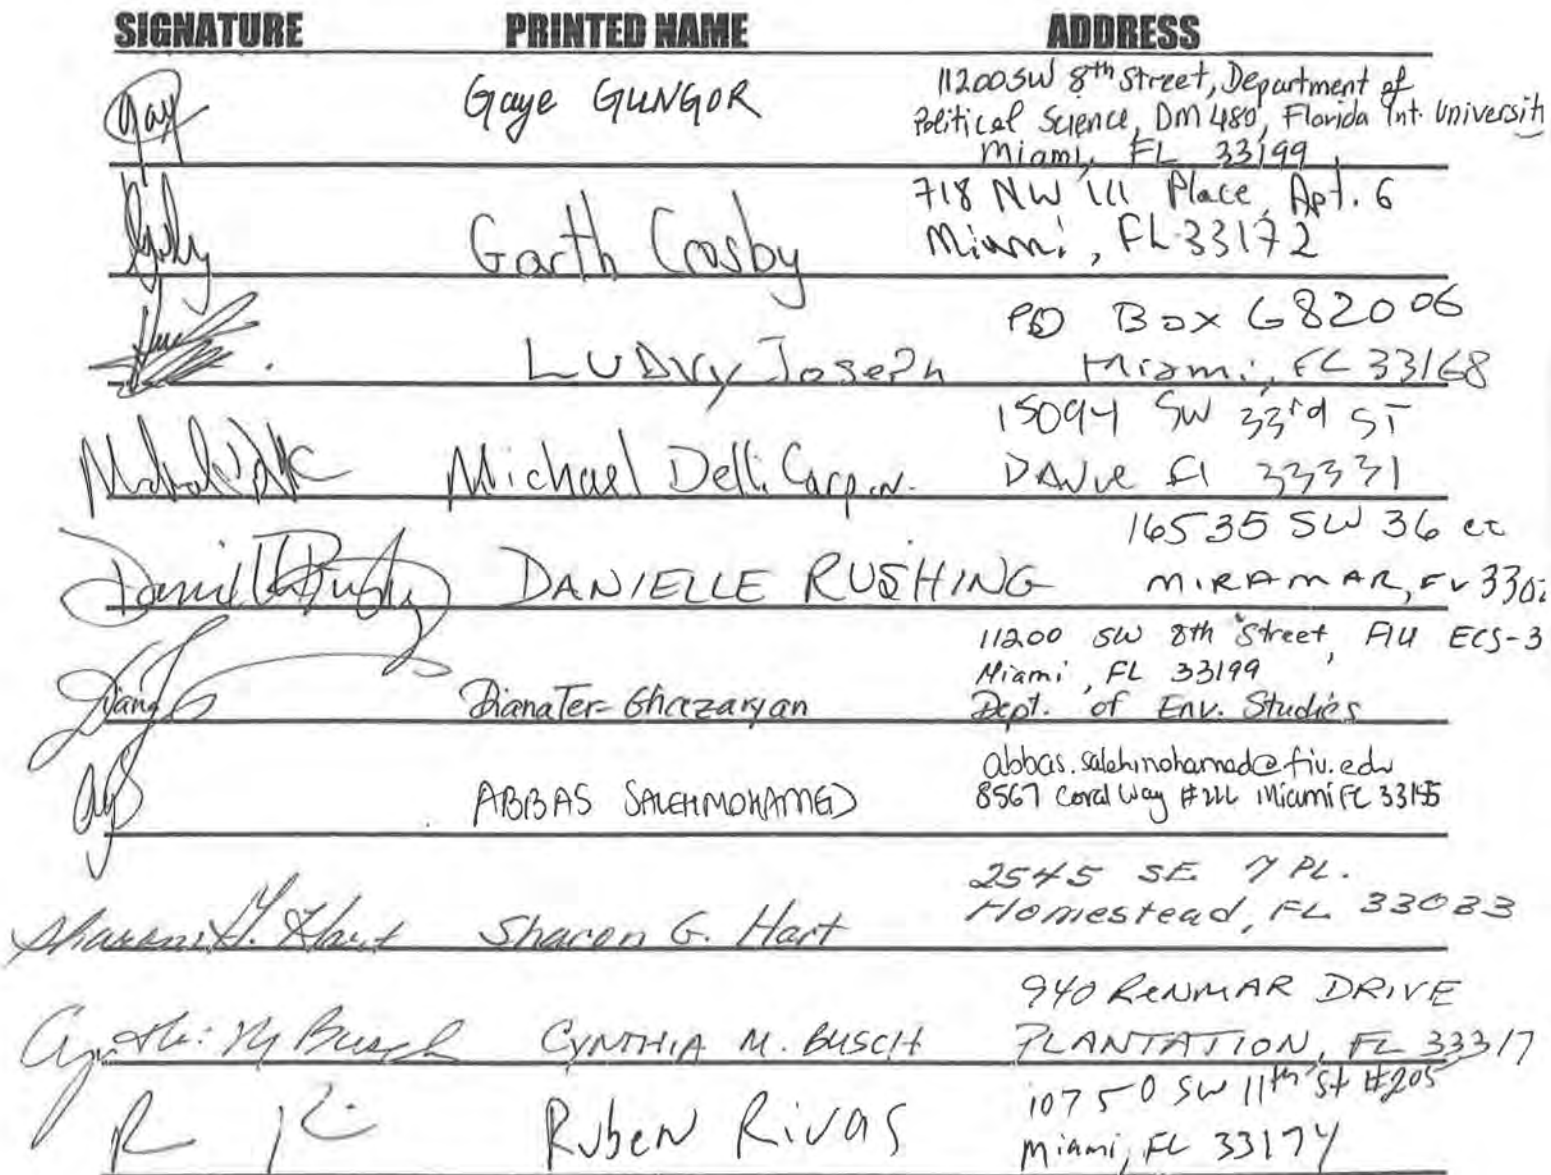 SIGNATURE PRINTED NAME ADDRESS
Gaye GUNGOR
11200 SW 8th Street, Department of
Political Science, DM 480, Florida Int. Universit
Miami, FL 33199
Garth Crosby
718 NW 111 Place, Apt. 6
Miami, FL 33172
LUDVY Joseph
PO Box 682006
Miami, FL 33168
Michael Delli Carpin.
15094 SW 33rd ST
DAVIE Fl 33331
Danielle Rushing DANIELLE RUSHING
16535 SW 36 ct
MIRAMAR, FL 330
Diana Diana Ter-Ghazaryan
11200 SW 8th Street, FIU ECS-3
Miami, FL 33199
Dept. of Env. Studies
ABBAS SALEHMOHAMED
abbas.salehmohamed@fiu.edu
8567 Coral Way # Miami FL 33155
Sharon G. Hart Sharon G. Hart
2545 SE 7 PL.
Homestead, FL 33033
Cynthia M Busch CYNTHIA M. BUSCH
940 RENMAR DRIVE
PLANTATION, FL 33317
R R Ruben Rivas
10750 SW 11th St #205
Miami, FL 33174